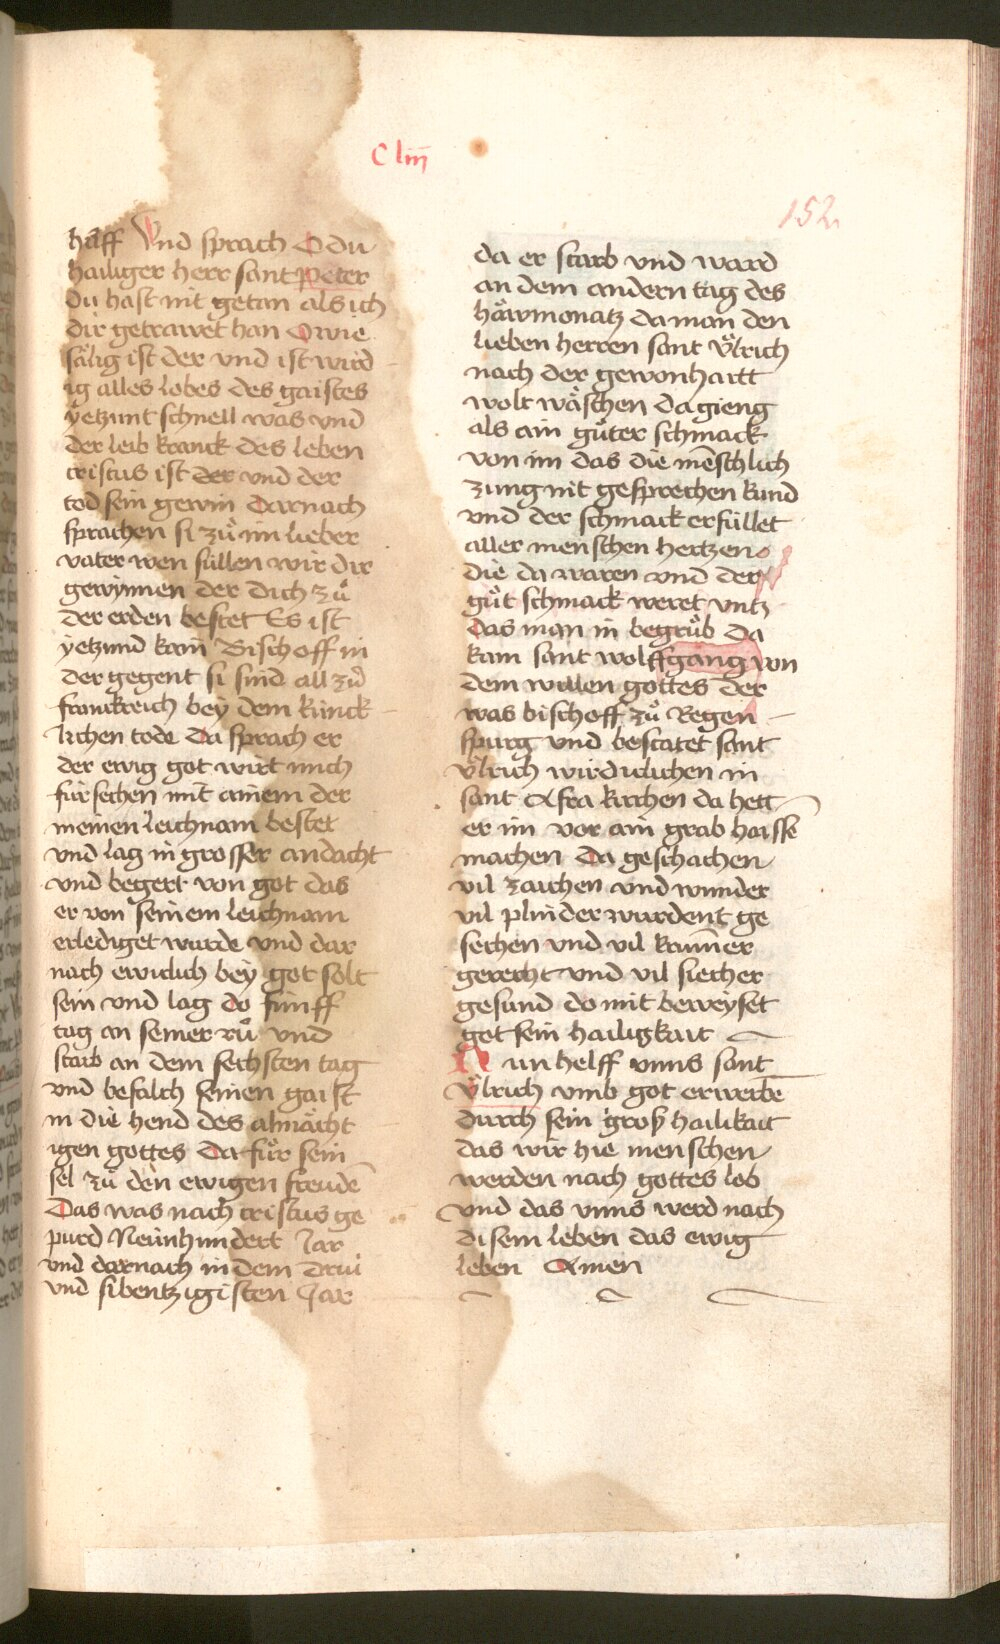 C liii
152
hilff Vnd sprach O du
hailiger herr sant Peter
du hast nit getan als ich
dir getrawet han O wie
sälig ist der vnd ist wird
ig alles lobes des gaistes
yetzunt schnell was vnd
der leib kranck des leben
cristus ist der vnd der
tod sein gewin Darnach
sprachen si zů im lieber
vater wen süllen wir dir
gewynnen der dich zů
der erden bestet Es ist
yetzund kain Bischoff in
der gegent si sind all zů
franckreich bey dem künck
lichen tode Da sprach er
der ewig got wirt mich
fürsechen mit ainem der
meinen leichnam bestet
vnd lag in grosser andacht
vnd begert von got das
er von seinem leichnam
erlediget wurde vnd dar
nach ewiclich bey got solt
sein vnd lag do fünff
tag an seiner rů vnd
starb an dem sechsten tag
vnd befalch seinen gaist
in die hend des almächt
igen gottes Da fůr sein
sel zů den ewigen freudē
Das was nach cristus ge
purd Neunhundert Jar
vnd darnach in dem Drui
vnd sibentzigisten Jar
da er starb vnd ward
an dem andern tag des
häwmonatz da man den
lieben herren sant Vlrich
nach der gewonhaitt
wolt wäschen da gieng
als ain gůter schmack
von im das die mēschlich
zung nit gesprechen kund
vnd der schmack erfüllet
aller menschen hertzen
die da waren vnd der
gůt schmack weret vntz
Das man in begrůb Da
kam sant wolffgang von
dem willen gottes der
was bischoff zů Regen
spurg vnd bestatet sant
Vlrich wirdiclichen in
sant Afra kirchen da hett
er im vor ain grab haissē
machen Da geschachen
vil zaichen vnd wunder
vil plinder wurdent ge
sechen vnd vil krumer
gerecht vnd vil siecher
gesund do mit beweyset
got sein hailigkait
Nun helff vnns sant
Vlrich vmb got erwerbē
durch sein groß hailikait
das wir hie menschen
werden nach gottes lob
vnd das vnns werd nach
disem leben das ewig
leben Amen